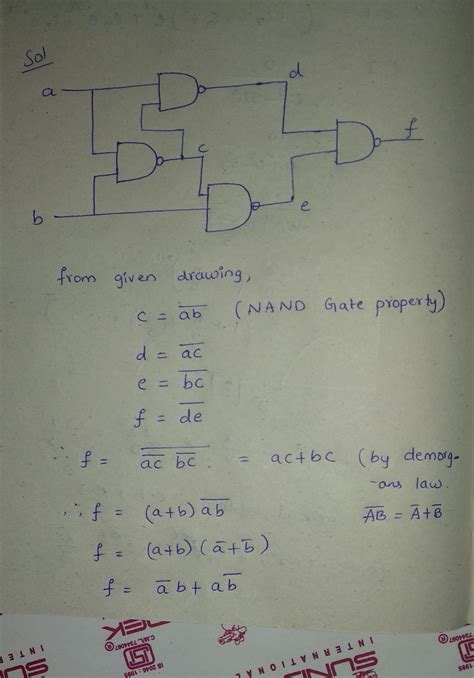 Sol
a
d
f
c
b
e
from given drawing,
c = \overline{ab} (NAND Gate property)
d = \overline{ac}
e = \overline{bc}
f = \overline{de}
∴ f = \overline{\overline{ac} \overline{bc}} = ac+bc (by demorg-
-ans law.
∴ f = (a+b) \overline{ab} \overline{AB} = \overline{A}+\overline{B}
f = (a+b) (\overline{a}+\overline{b})
f = \overline{a}b + a\overline{b}
INTERNATIONAL
SUN
CML 7344067
ISI
IS 2046 : 1995